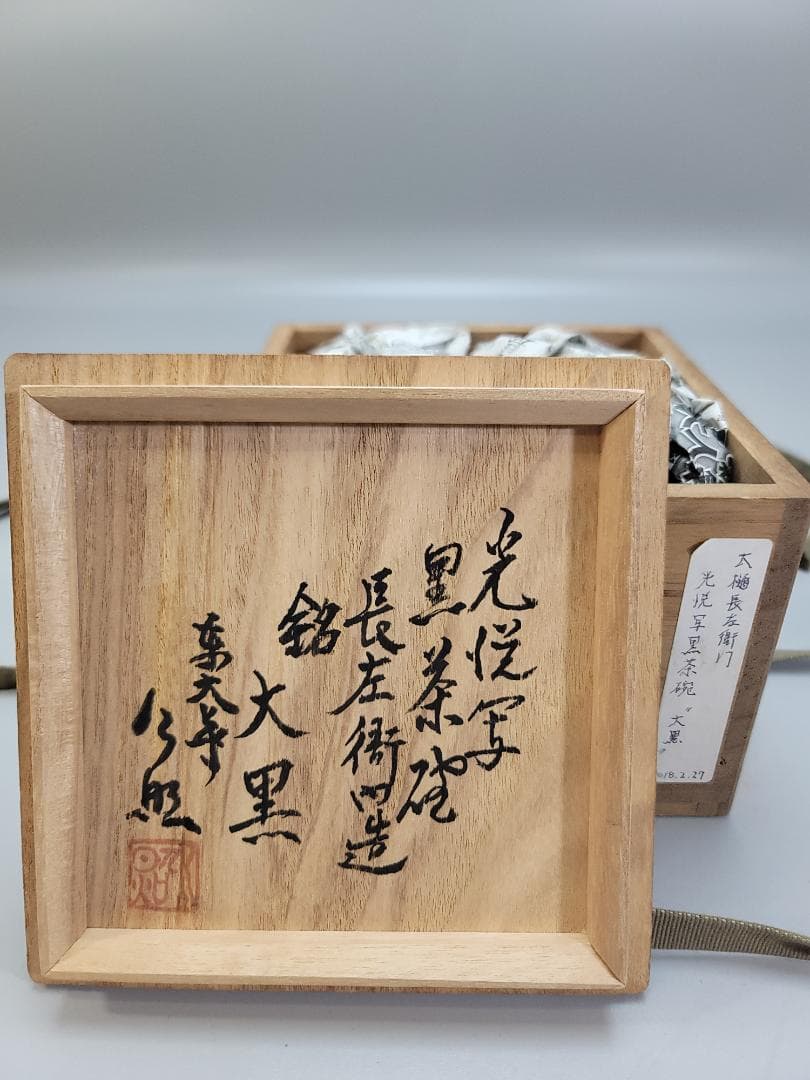 光悦写
黒茶碗
長左衛門造
銘
大黒
東大寺
公照
大樋長左衛門
光悦写黒茶碗“大黒”
018.2.27